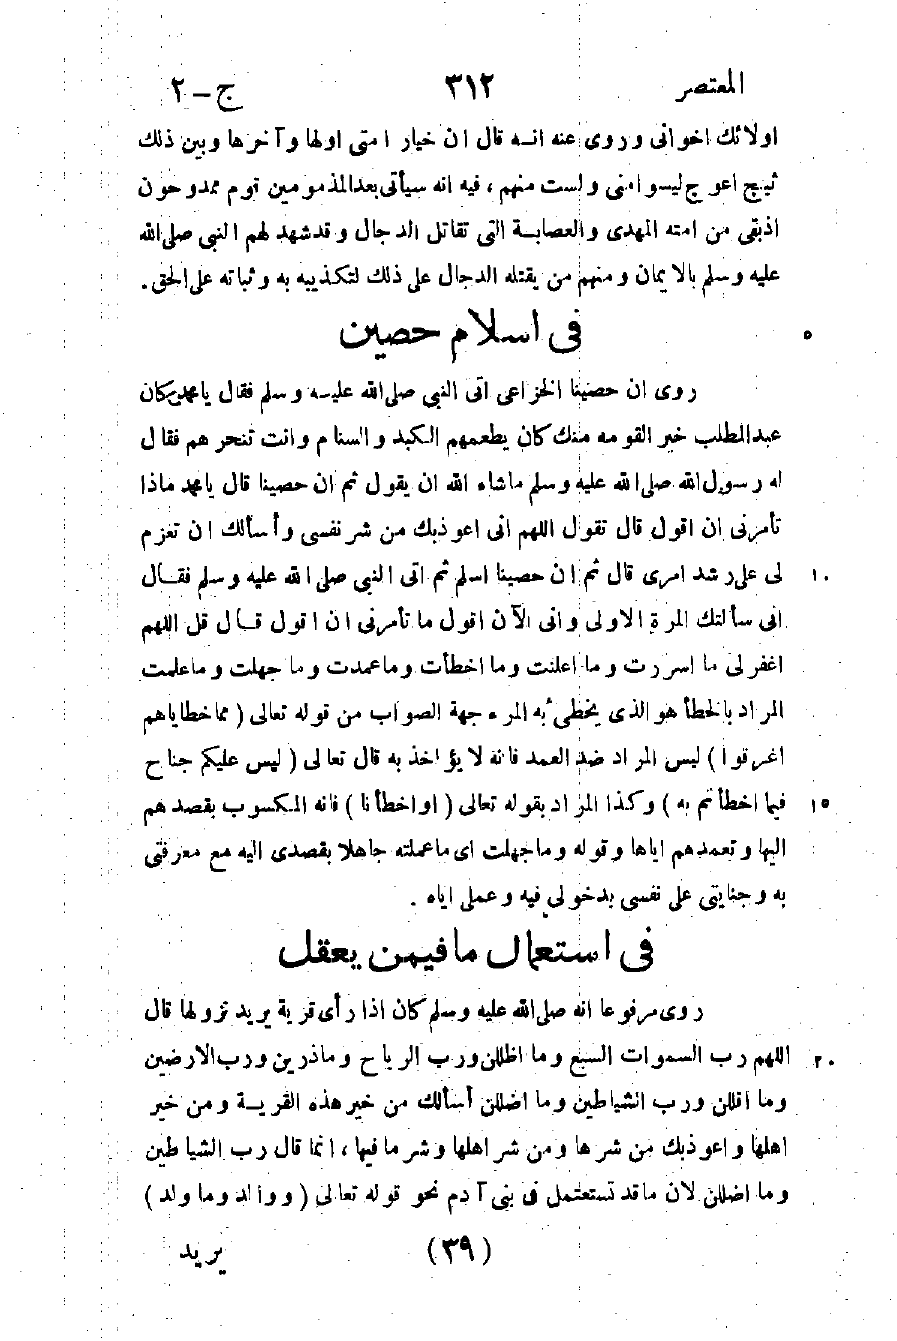 المعتصر ٣١٢ ج – ٢
اولائك اخوانى وروى عنه انه قال ان خيار امتى اولها وآخرها وبين ذلك
ثبج اعوج ليسوا منى ولست منهم ، فيه انه سيأتى بعد المذمومين قوم ممدوحون
اذ بقى من امته المهدى والعصابة التى تقاتل الدجال وقد شهد لهم النبى صلى الله
عليه وسلم بالايمان ومنهم من يقتله الدجال على ذلك لتكذيبه به وثباته على الحق .
فى اسلام حصين
٥
روى ان حصينا الخزاعى اتى النبى صلى الله عليه وسلم فقال يا محمد كان
عبد المطلب خير القومه منك كان يطعمهم الكبد والسنام وانت تنحرهم فقال
له رسول الله صلى الله عليه وسلم ماشاء الله ان يقول ثم ان حصينا قال يا محمد ماذا
تأمرنى ان اقول قال تقول اللهم انى اعوذ بك من شر نفسى وأسألك ان تعزم
لى على رشد امرى قال ثم ان حصينا اسلم ثم اتى النبى صلى الله عليه وسلم فقال
١٠
انى سألتك المرة الاولى وانى الآن اقول ما تأمرنى ان اقول قال قل اللهم
اغفر لى ما اسررت وما اعلنت وما اخطأت وما عمدت وما جهلت وما علمت
المراد بالخطأ هو الذى يخطىء به المرء جهة الصواب من قوله تعالى ( مما خطاياهم
اغرقوا ) ليس المراد ضد العمد فانه لا يؤاخذ به قال تعالى ( ليس عليكم جناح
فيما اخطأتم به ) وكذا المراد بقوله تعالى ( او اخطأنا ) فانه المكسوب بقصدهم
١٥
اليها وتعمدهم اياها وقوله وما جهلت اى ما عملته جاهلا بقصدى اليه مع معرفتى
به وجنايتى على نفسى بدخولى فيه وعملى اياه .
فى استعمال ما فيمن يعقل
روى مرفوعا انه صلى الله عليه وسلم كان اذا رأى قرية يريد نزولها قال
اللهم رب السموات السبع وما اظللن ورب الرياح وما ذرين ورب الارضين
٢٠
وما اقللن ورب الشياطين وما اضللن أسألك من خير هذه القرية ومن خير
اهلها واعوذ بك من شرها ومن شر اهلها وشر ما فيها ، انما قال رب الشياطين
وما اضللن لان ما قد تستعتمل فى بنى آدم نحو قوله تعالى ( ووالد وما ولد )
(٣٩) يريد